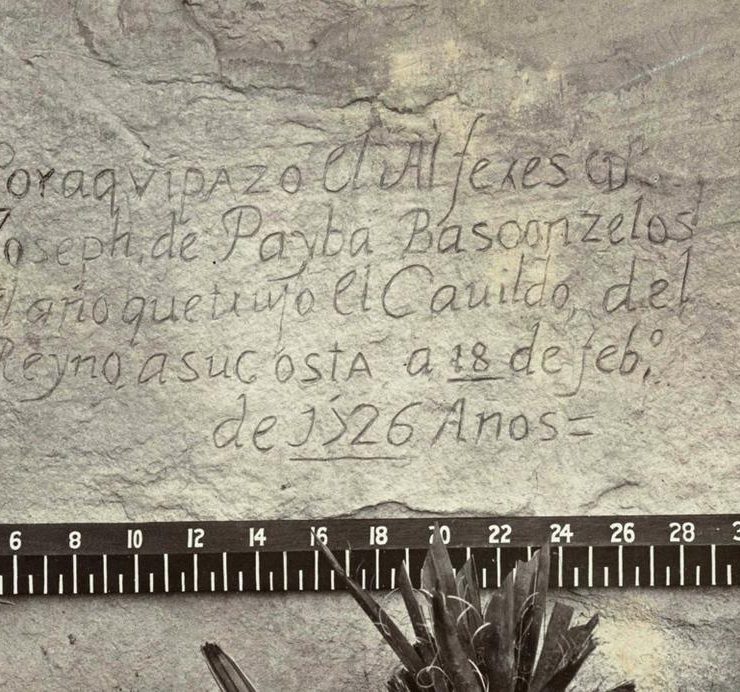 Por aqvi pazo el Alferes Dn
Joseph, de Payba Basconzelos
el año que trujo el Cauildo, del
Reyno, a su costa a 18 de feb.º
de 1726 Años=
6 8 10 12 14 16 18 20 22 24 26 28